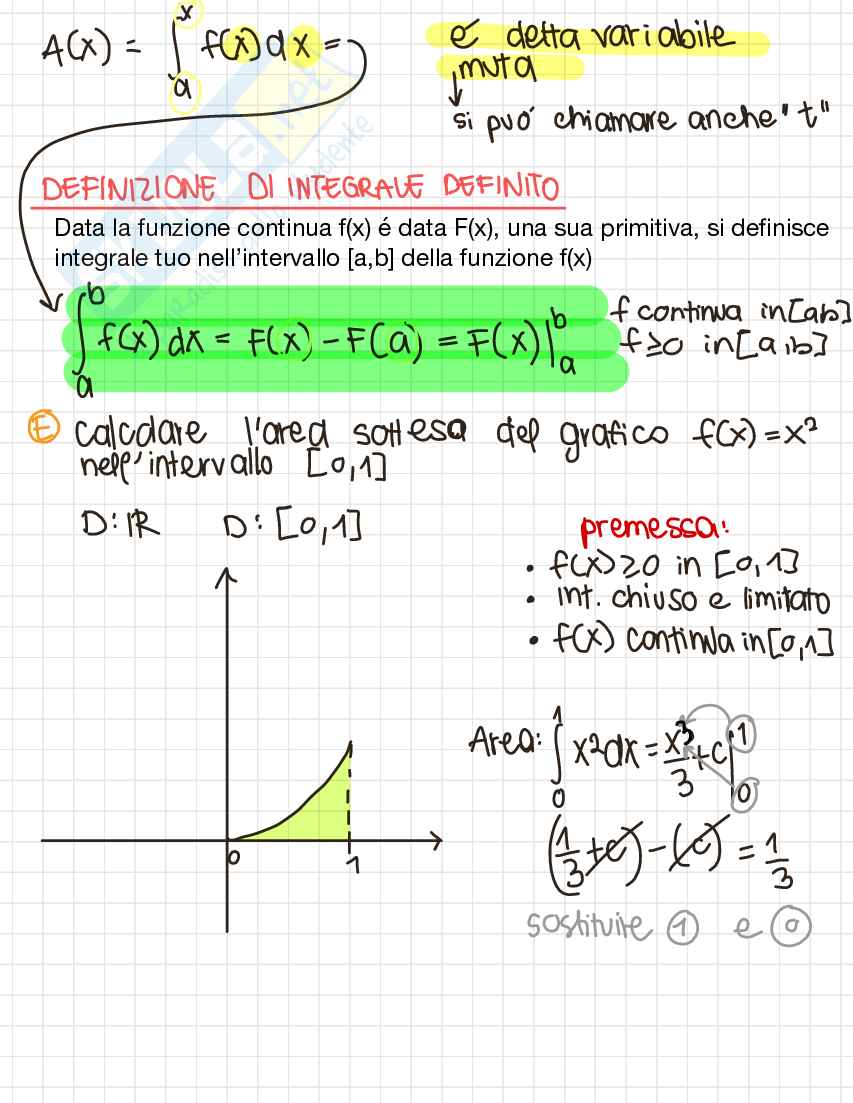 A(x) = ∫ₐˣ f(x) dx =
è detta variabile
muta
si può chiamare anche "t"
DEFINIZIONE DI INTEGRALE DEFINITO
Data la funzione continua f(x) é data F(x), una sua primitiva, si definisce
integrale tuo nell'intervallo [a,b] della funzione f(x)
∫ₐᵇ f(x) dx = F(x) - F(a) = F(x)|ₐᵇ
f continua in [ab]
f ≥ 0 in [a,b]
E calcolare l'area sottesa del grafico f(x) = x²
nell'intervallo [0,1]
D: ℝ D: [0,1]
premessa:
• f(x) ≥ 0 in [0,1]
• int. chiuso e limitato
• f(x) continua in [0,1]
Area: ∫₀¹ x² dx = x³/3 + c |₀¹
(1/3 + c) - (c) = 1/3
0 1
sostituire 1 e 0